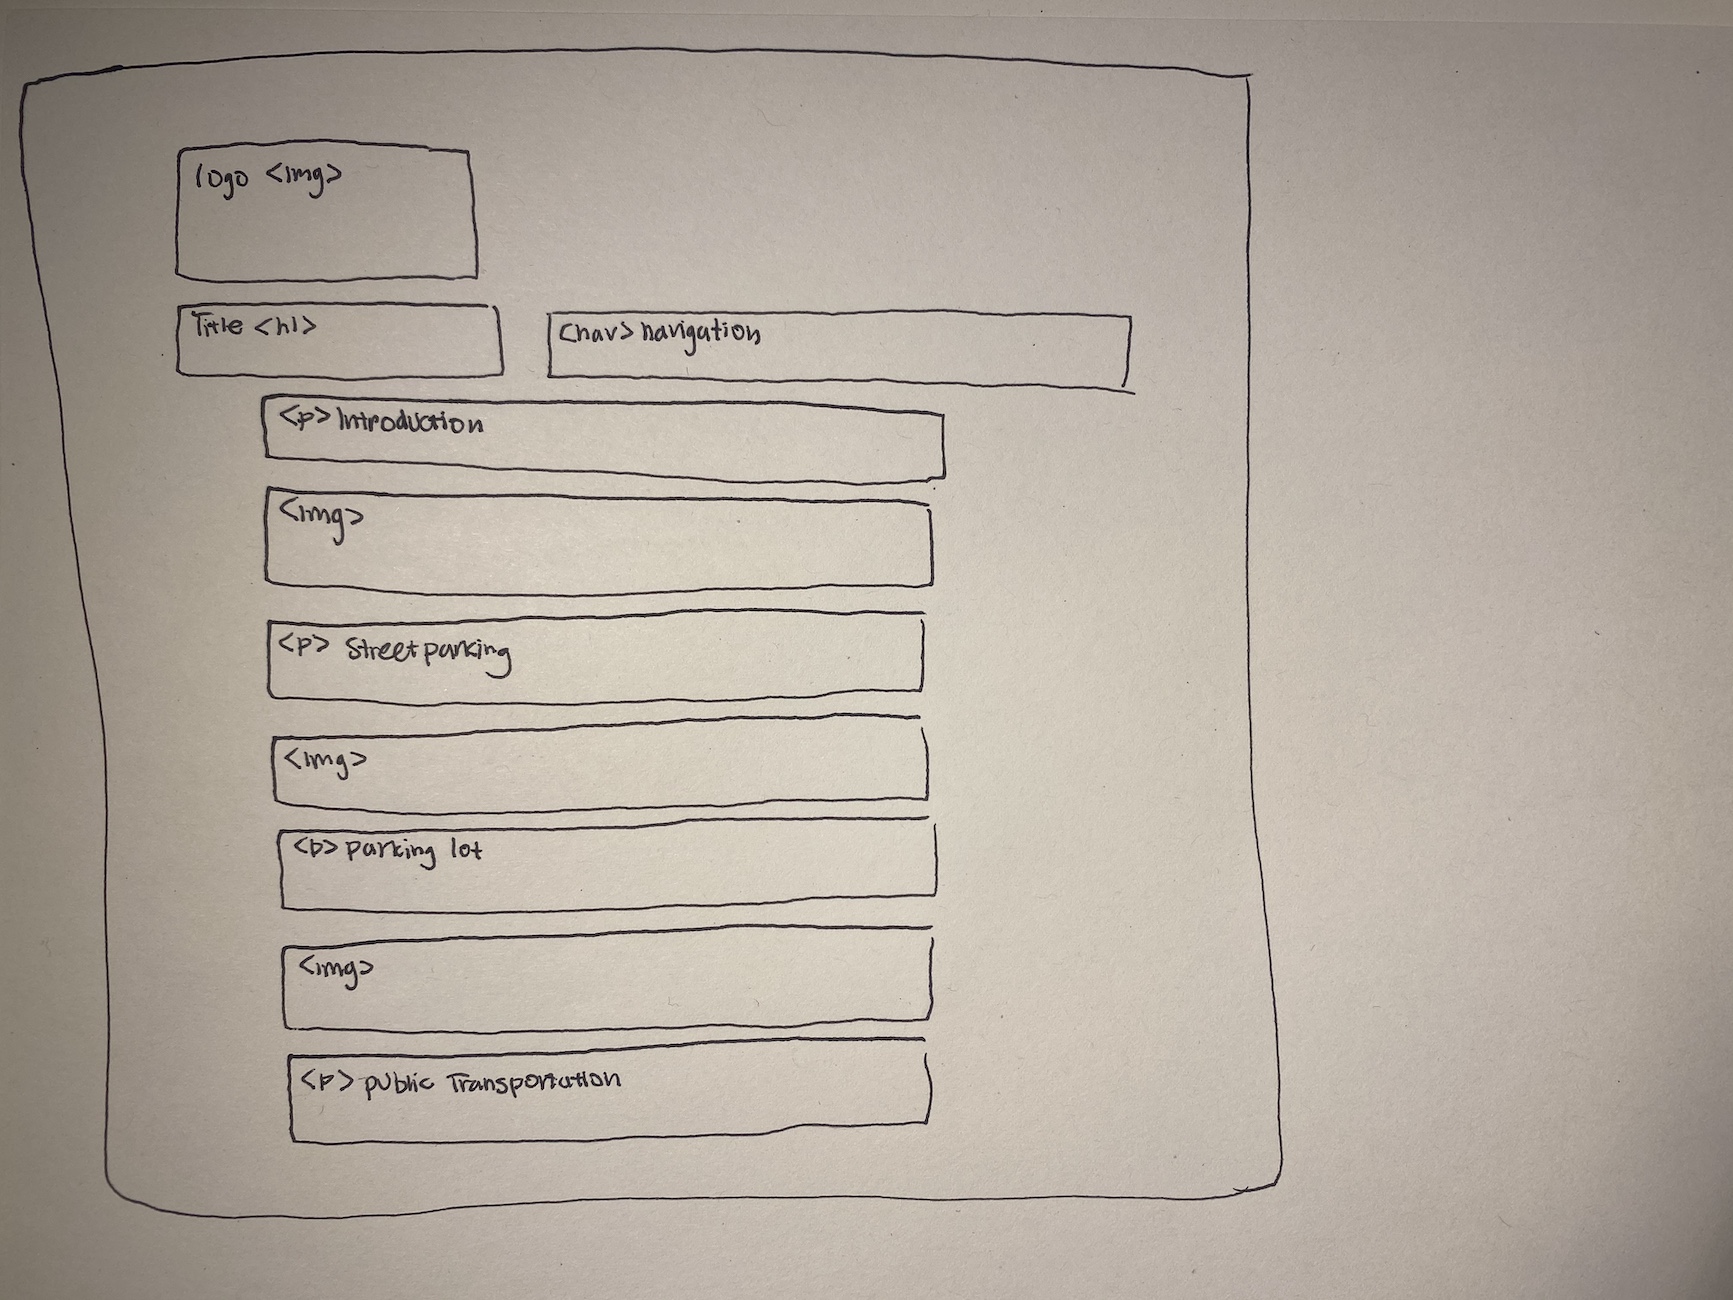 logo <img>
Title <h1>
<nav> navigation
<p> Introduction
<img>
<p> Street parking
<img>
<p> parking lot
<img>
<p> public Transportation